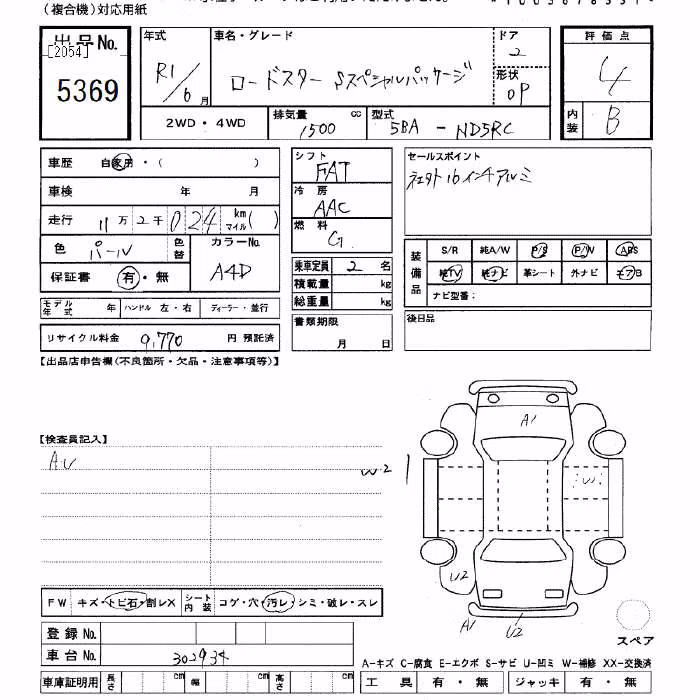 (複合機)対応用紙
出品No. [2054] 5369
年式 R1/6月
車名・グレード ロードスター Sスペシャルパッケージ
ドア 2
形状 OP
評価点 4
内装 B
2WD・4WD
排気量 1500 cc
型式 5BA - ND5RC
車歴 自家用・( )
車検 年 月
走行 11万2千024 km マイル( )
色 パール 色替
カラーNo. A4D
保証書 有・無
モデル年式 年 ハンドル 左・右 ディーラー・並行
リサイクル料金 9,770 円 預託済
シフト FAT
冷房 AAC
燃料 G
乗車定員 2 名
積載量 kg
総重量 kg
書類期限 月 日
セールスポイント
16インチアルミ
装備品 S/R 純A/W P/S P/W ABS
純TV 純ナビ 革シート 外ナビ エアB
ナビ型番:
後日品
【出品店申告欄(不良箇所・欠品・注意事項等)】
【検査員記入】
AU
W2
A1
W
U2
A1
U2
FW キズ・トビ石・割レX シート内装 コゲ・穴・汚レ・シミ・破レ・スレ
登録No.
車台No. 302934
車庫証明用 長さ cm 幅 cm 高さ cm
スペア
A-キズ C-腐食 E-エクボ S-サビ U-凹ミ W-補修 XX-交換済
工具 有・無 ジャッキ 有・無